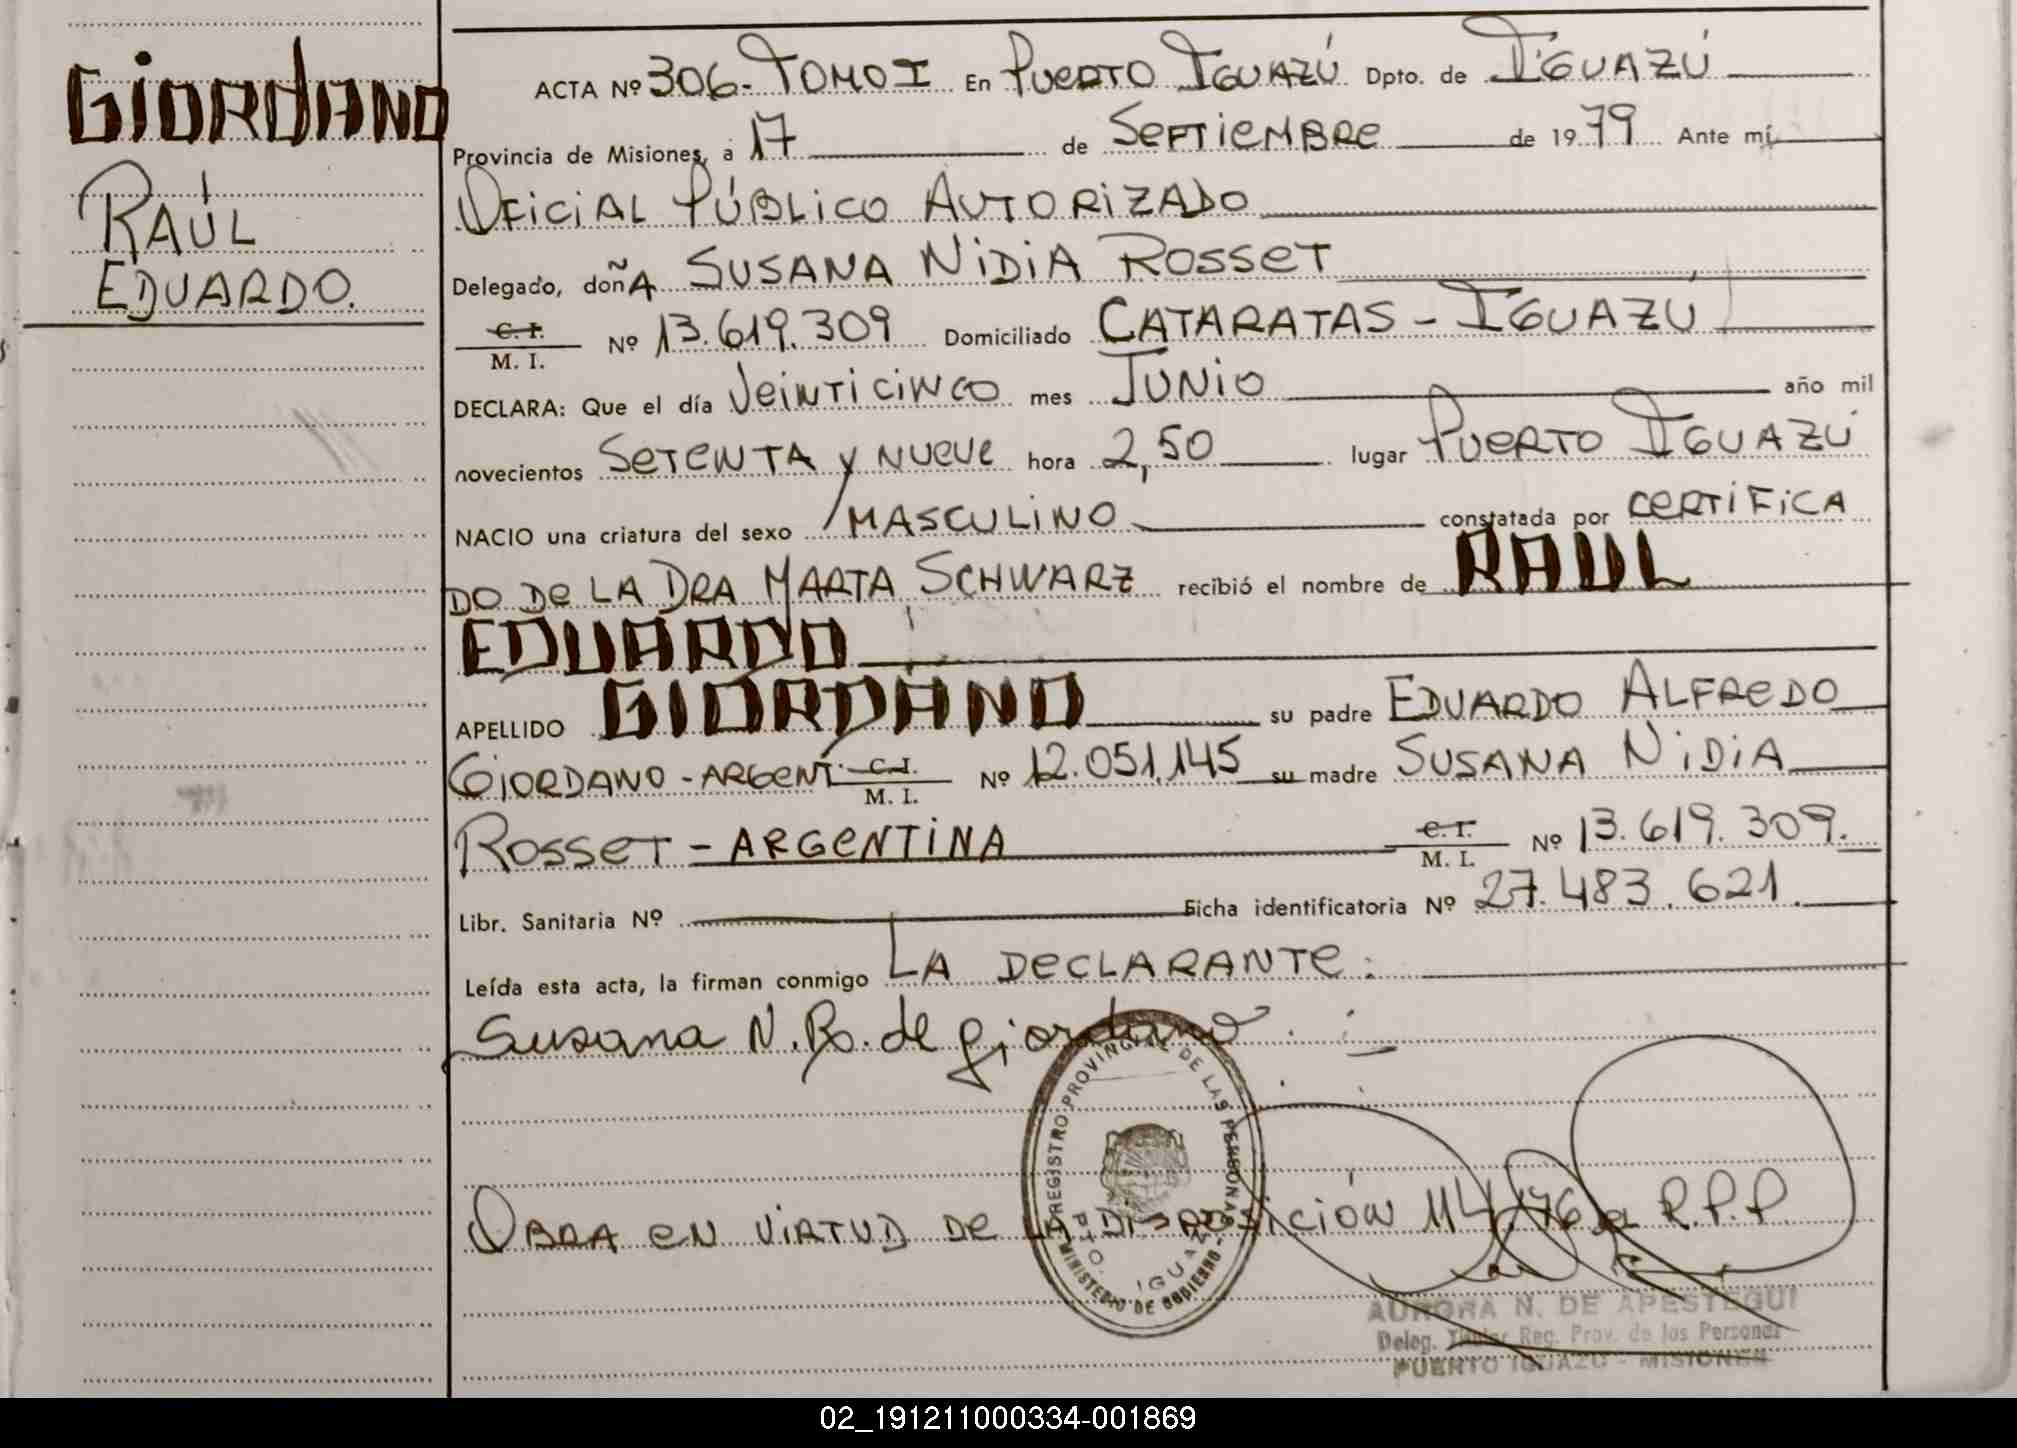 GIORDANO
RAÚL
EDUARDO.
ACTA Nº 306- TOMO I En PUERTO IGUAZÚ Dpto. de IGUAZÚ
Provincia de Misiones, a 17 de SEPTIEMBRE de 1979 Ante mí
OFICIAL PÚBLICO AUTORIZADO
Delegado, doñA SUSANA NIDIA ROSSET
C. I.
M. I. Nº 13.619.309 Domiciliado CATARATAS - IGUAZÚ
DECLARA: Que el día VEINTICINCO mes JUNIO año mil
novecientos SETENTA Y NUEVE hora 2,50 lugar PUERTO IGUAZÚ
NACIO una criatura del sexo MASCULINO constatada por CERTIFICA
DO DE LA DRA MARTA SCHWARZ recibió el nombre de RAUL
EDUARDO
APELLIDO GIORDANO su padre EDUARDO ALFREDO
GIORDANO - ARGENT. C. I. M. I. Nº 12.051.145 su madre SUSANA NIDIA
ROSSET - ARGENTINA C. I. M. I. Nº 13.619.309.
Libr. Sanitaria Nº Ficha identificatoria Nº 27.483.621.
Leída esta acta, la firman conmigo LA DECLARANTE.
Susana N. R. de Giordano
REGISTRO PROVINCIAL DE LAS PERSONAS
PTO. IGUAZU
MINISTERIO DE GOBIERNO
OBRA EN VIRTUD DE LA DISPOSICIÓN 114/76 R.P.P.
AURORA N. DE APESTEGUI
Deleg. Titular Reg. Prov. de las Personas
PUERTO IGUAZU - MISIONES
02_191211000334-001869